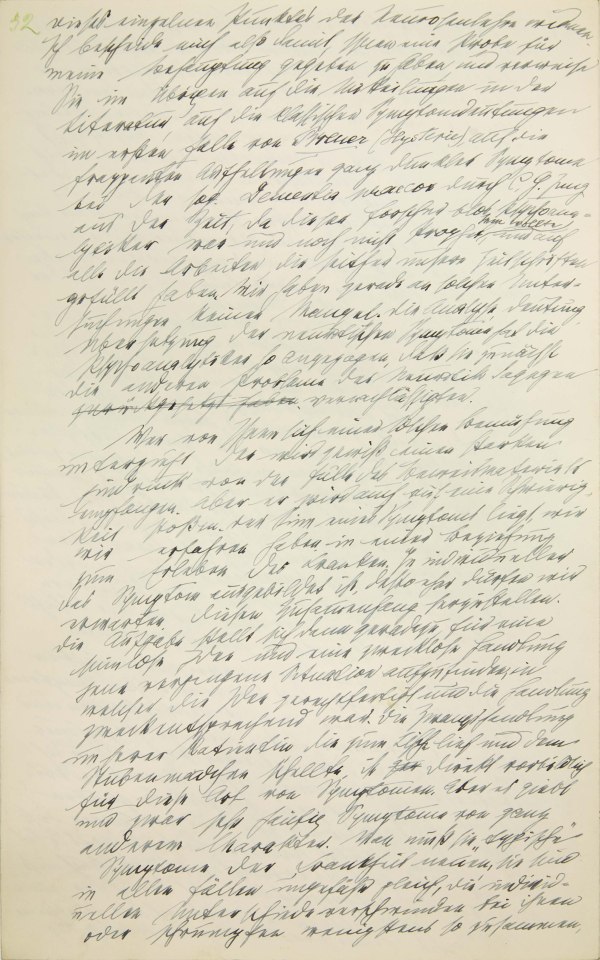 32
dieses einzelnen Punktes der Neurosenlehre widmen
Ich bescheide mich also damit, Ihnen eine Probe für
meine Behauptung gegeben zu haben und verweise
Sie im Übrigen auf die Mitteilungen in der
Literatur, auf die klassischen Symptomdeutungen
im ersten Falle von Breuer (Hysterie) auf die
frappanten Aufhellungen ganz dunkler Symptome
bei der sog. Dementia praecox durch C. G. Jung
aus der Zeit, da dieser Forscher blos Psychoana-
lytiker war und noch nicht Prophet sein wollte, und auf
alle die Arbeiten die seither unsere Zeitschriften
gefüllt haben. Wir haben gerade an solchen Unter-
suchungen keinen Mangel. Die Analyse, Deutung,
Übersetzung der neurotischen Symptome hat die
Psychoanalytiker so angezogen, daß sie zunächst
die anderen Probleme der Neurotik dagegen
zurückgesetzt haben vernachlässigten.
Wer von Ihnen sich einer solchen Bemühung
unterzieht, der wird gewiß einen starken
Eindruck von der Fülle des Beweismaterials
empfangen. Aber er wird auch auf eine Schwierig-
keit stoßen. Der Sinn eines Symptoms liegt, wie
wir erfahren haben in einer Beziehung
zum Erleben des Kranken. Je individueller
das Symptom ausgebildet ist, desto eher dürfen wir
erwarten, diesen Zusammenhang herzustellen.
Die Aufgabe stellt sich dann geradezu, für eine
sinnlose Idee und eine zwecklose Handlung
jene vergangene Situation aufzufinden, in
welcher die Idee gerechtfertigt und die Handlung
zweckentsprechend war. Die Zwangshandlung
unserer Patientin die zum Tisch lief und dem
Stubenmädchen schellte, ist direkt vorbildlich
für diese Art von Symptomen. Aber es giebt
und zwar sehr häufig Symptome von ganz
anderem Charakter. Man muß sie „typische“
Symptome der Krankheit nennen, sie sind
in allen Fällen ungefähr gleich, die individ-
uellen Unterschiede verschwinden bei ihnen
oder schrumpfen wenigstens so zusammen,